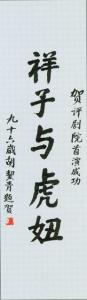 贺评剧院首演成功
祥子与虎妞
九十六岁胡絜青题贺